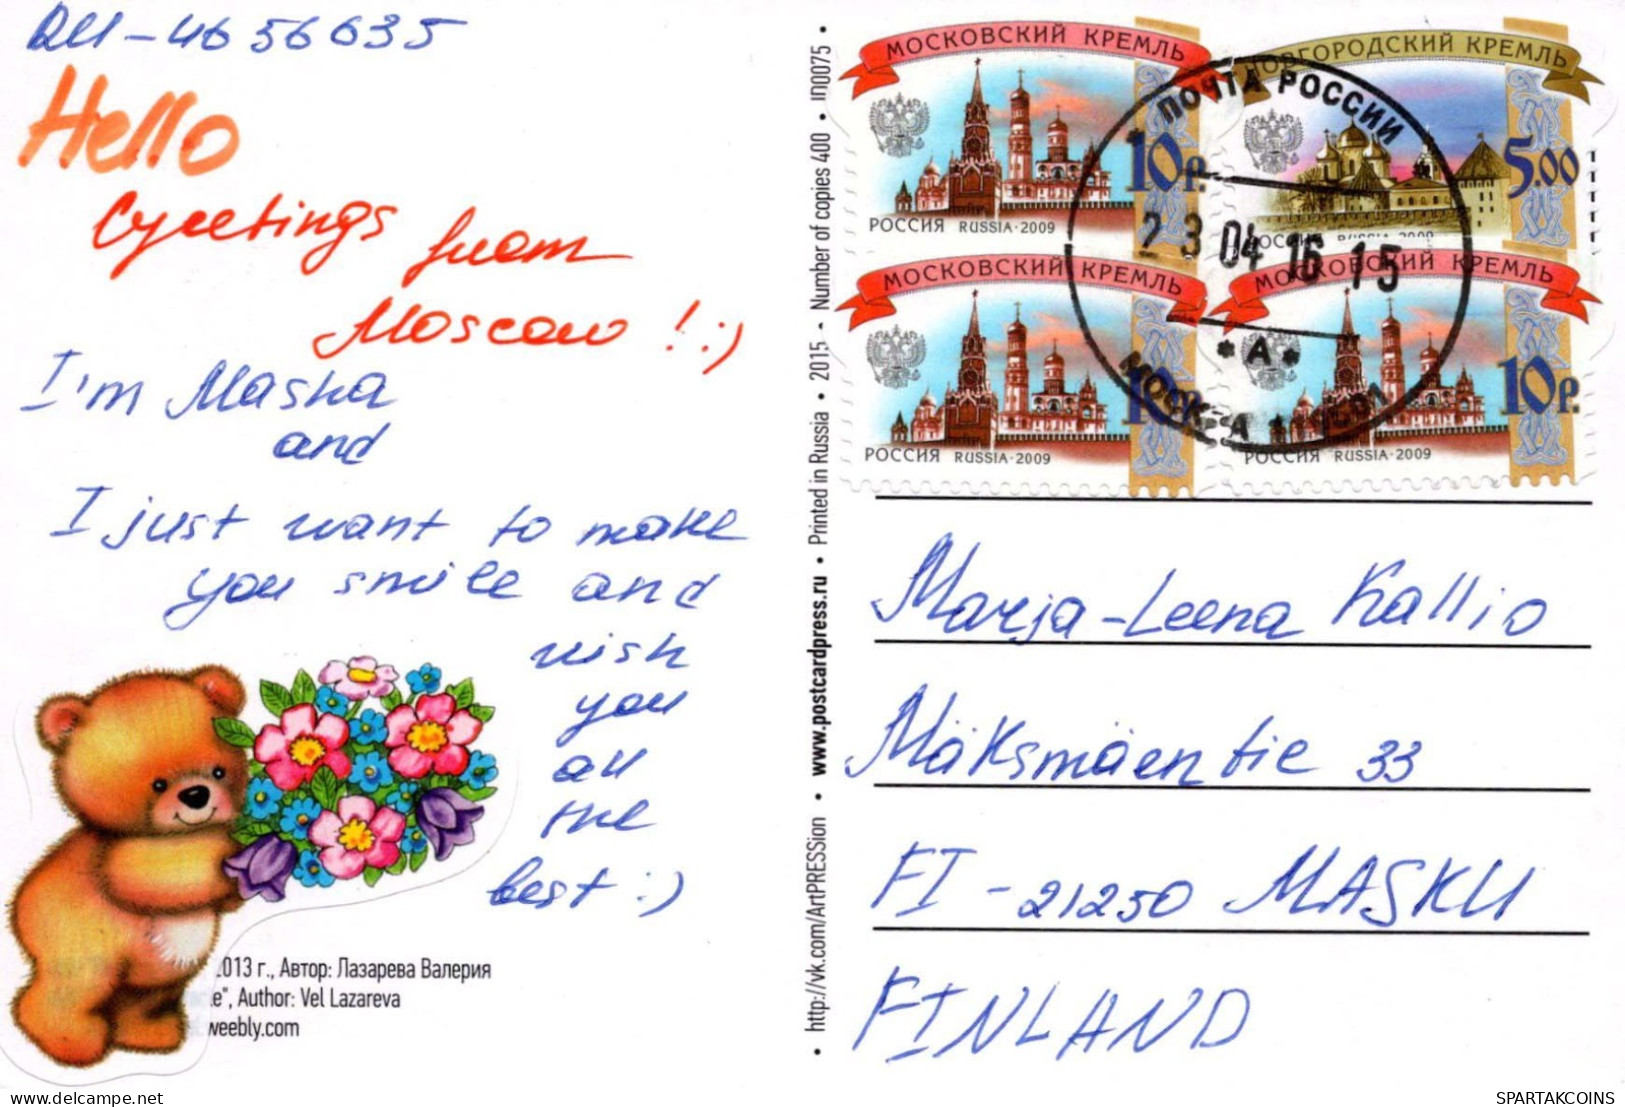 RU-4656635
Hello
Greetings from
Moscow ! :)
I'm Masha
and
I just want to make
you smile and
wish
you
all
the
best :)
2013 г., Автор: Лазарева Валерия
", Author: Vel Lazareva
weebly.com
http://vk.com/ArtPRESSion • www.postcardpress.ru • Printed in Russia • 2015 - Number of copies 400 • in0075 •
МОСКОВСКИЙ КРЕМЛЬ
10р.
РОССИЯ RUSSIA·2009
НОВГОРОДСКИЙ КРЕМЛЬ
5.00
РОССИЯ RUSSIA·2009
МОСКОВСКИЙ КРЕМЛЬ
10р.
РОССИЯ RUSSIA·2009
МОСКОВСКИЙ КРЕМЛЬ
10р.
РОССИЯ RUSSIA·2009
ПОЧТА РОССИИ
23 04 16 15
* А *
МОСКВА
Marja-Leena Kallio
Mäksmäentie 33
FI - 21250 MASKU
FINLAND
www.delcampe.net
SPARTAKCOINS